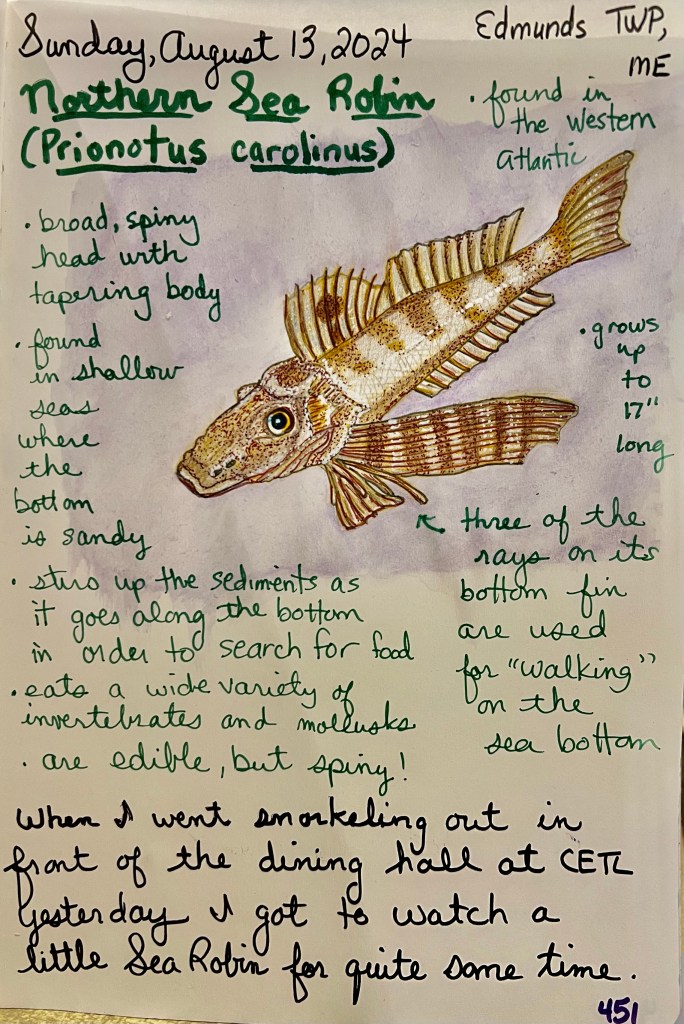 Sunday, August 13, 2024
Edmunds TWP,
ME
Northern Sea Robin
(Prionotus carolinus)
• found in
the western
Atlantic
• broad, spiny
head with
tapering body
• found
in shallow
seas
where
the
bottom
is sandy
• grows
up
to
17"
long
• stirs up the sediments as
it goes along the bottom
in order to search for food
• eats a wide variety of
invertebrates and mollusks
• are edible, but spiny!
three of the
rays on its
bottom fin
are used
for "walking"
on the
sea bottom
When I went snorkeling out in
front of the dining hall at CETL
yesterday I got to watch a
little Sea Robin for quite some time.
451